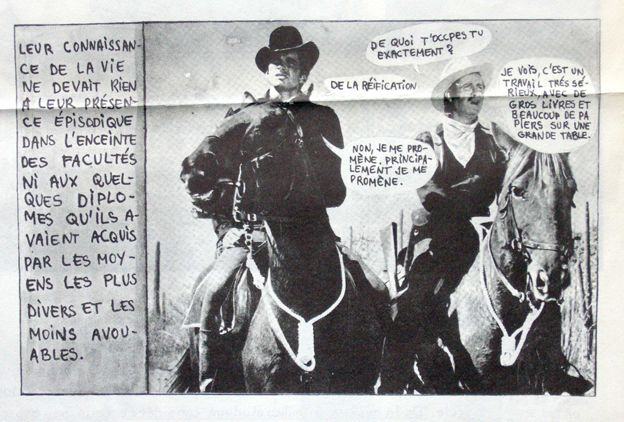 LEUR CONNAISSAN-
CE DE LA VIE
NE DEVAIT RIEN
A LEUR PRÉSEN-
CE ÉPISODIQUE
DANS L'ENCEINTE
DES FACULTÉS
NI AUX QUEL-
QUES DIPLO-
MES QU'ILS A-
VAIENT ACQUIS
PAR LES MOY-
ENS LES PLUS
DIVERS ET LES
MOINS AVOU-
ABLES.
DE QUOI T'OCCPES TU
EXACTEMENT?
DE LA RÉIFICATION
JE VOIS, C'EST UN
TRAVAIL TRÉS SÉ-
RIEUX, AVEC DE
GROS LIVRES ET
BEAUCOUP DE PA
PIERS SUR UNE
GRANDE TABLE.
NON, JE ME PRO-
MÈNE. PRINCIPA-
LEMENT JE ME
PROMÈNE.